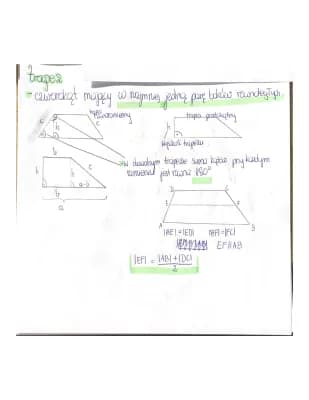 trapez
- czworokąt mający co najmniej jedną parę boków równoległych
równoramienny
c
h
c
h
wysokość trapezu
b
h
c
b
a-b
a
w dowolnym trapezie suma kątów przy każdym
ramieniu jest równa 180°
D
C
E
F
A
B
|AE|=|ED| |BF|=|FC|
EF||AB
|EF| = |AB|+|DC|
2